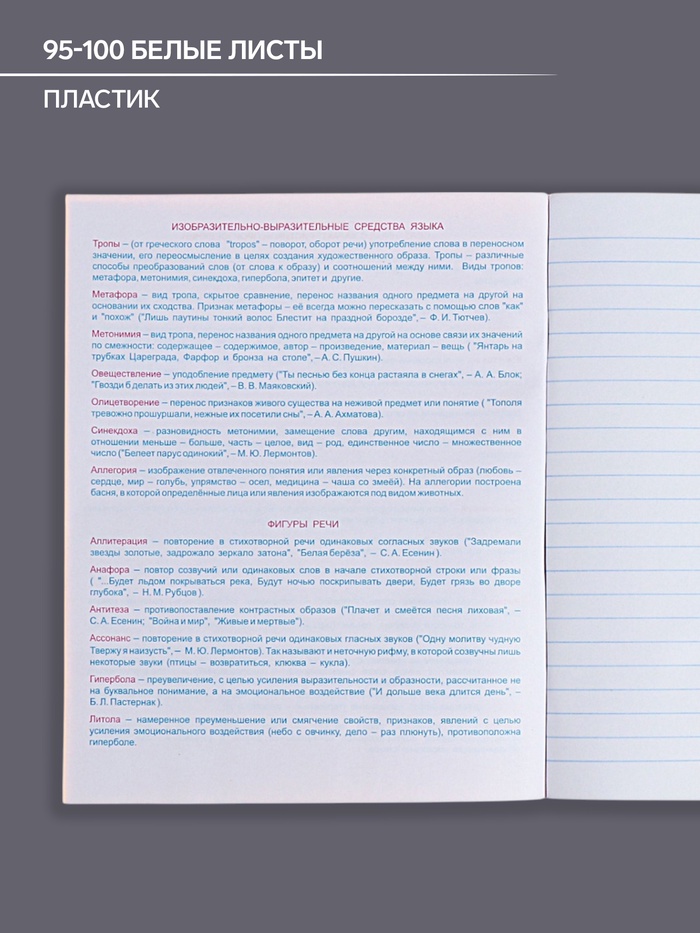 95-100 БЕЛЫЕ ЛИСТЫ
ПЛАСТИК
ИЗОБРАЗИТЕЛЬНО-ВЫРАЗИТЕЛЬНЫЕ СРЕДСТВА ЯЗЫКА
Тропы – (от греческого слова "tropos" – поворот, оборот речи) употребление слова в переносном
значении, его переосмысление в целях создания художественного образа. Тропы – различные
способы преобразований слов (от слова к образу) и соотношений между ними. Виды тропов:
метафора, метонимия, синекдоха, гипербола, эпитет и другие.
Метафора – вид тропа, скрытое сравнение, перенос названия одного предмета на другой на
основании их сходства. Признак метафоры – её всегда можно пересказать с помощью слов "как"
и "похож" ("Лишь паутины тонкий волос Блестит на праздной борозде", – Ф. И. Тютчев).
Метонимия – вид тропа, перенос названия одного предмета на другой на основе связи их значений
по смежности: содержащее – содержимое, автор – произведение, материал – вещь ( "Янтарь на
трубках Цареграда, Фарфор и бронза на столе", – А. С. Пушкин).
Овеществление – уподобление предмету ("Ты песнью без конца растаяла в снегах", – А. А. Блок;
"Гвозди б делать из этих людей", – В. В. Маяковский).
Олицетворение – перенос признаков живого существа на неживой предмет или понятие ( "Тополя
тревожно прошуршали, нежные их посетили сны", – А. А. Ахматова).
Синекдоха – разновидность метонимии, замещение слова другим, находящимся с ним в
отношении меньше – больше, часть – целое, вид – род, единственное число – множественное
число ("Белеет парус одинокий", – М. Ю. Лермонтов).
Аллегория – изображение отвлеченного понятия или явления через конкретный образ (любовь –
сердце, мир – голубь, упрямство – осел, медицина – чаша со змеёй). На аллегории построена
басня, в которой определённые лица или явления изображаются под видом животных.
ФИГУРЫ РЕЧИ
Аллитерация – повторение в стихотворной речи одинаковых согласных звуков ("Задремали
звезды золотые, задрожало зеркало затона", "Белая берёза", – С. А. Есенин ).
Анафора – повтор созвучий или одинаковых слов в начале стихотворной строки или фразы
( "...Будет льдом покрываться река, Будут ночью поскрипывать двери, Будет грязь во дворе
глубока", – Н. М. Рубцов ).
Антитеза – противопоставление контрастных образов ("Плачет и смеётся песня лиховая", –
С. А. Есенин; "Война и мир", "Живые и мертвые").
Ассонанс – повторение в стихотворной речи одинаковых гласных звуков ("Одну молитву чудную
Твержу я наизусть", – М. Ю. Лермонтов). Так называют и неточную рифму, в которой созвучны лишь
некоторые звуки (птицы – возвратиться, клюква – кукла).
Гипербола – преувеличение, с целью усиления выразительности и образности, рассчитанное не
на буквальное понимание, а на эмоциональное воздействие ("И дольше века длится день", –
Б. Л. Пастернак ).
Литола – намеренное преуменьшение или смягчение свойств, признаков, явлений с целью
усиления эмоционального воздействия (небо с овчинку, дело – раз плюнуть), противоположна
гиперболе.